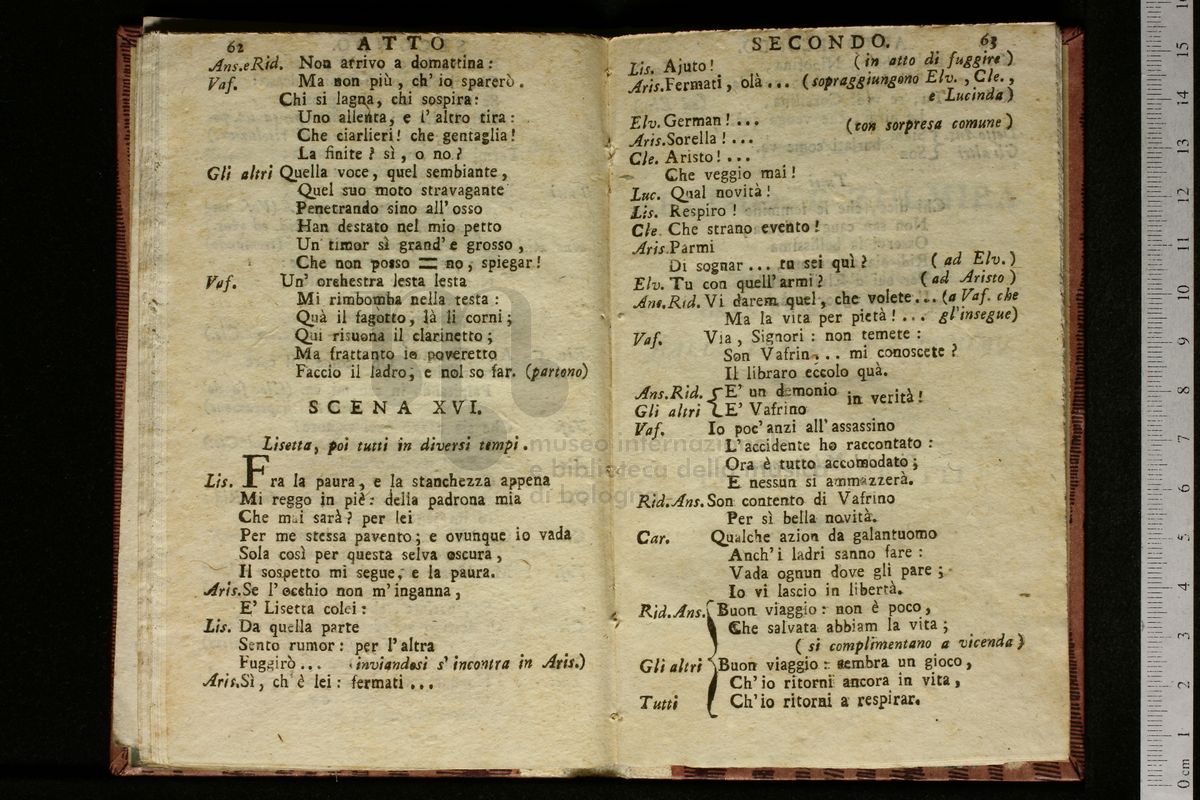 62 ATTO
Ans.e Rid. Non arrivo a domattina:
Vaf. Ma non più, ch' io sparerò.
Chi si lagna, chi sospira:
Uno allenta, e l' altro tira:
Che ciarlieri! che gentaglia!
La finite? sì, o no?
Gli altri Quella voce, quel sembiante,
Quel suo moto stravagante
Penetrando sino all' osso
Han destato nel mio petto
Un timor sì grand' e grosso,
Che non posso = no, spiegar!
Vaf. Un' orchestra lesta lesta
Mi rimbomba nella testa:
Quà il fagotto, là li corni;
Qui risuona il clarinetto;
Ma frattanto io poveretto
Faccio il ladro, e nol so far. (partono)
SCENA XVI.
Lisetta, poi tutti in diversi tempi.
Lis. Fra la paura, e la stanchezza appena
Mi reggo in piè: della padrona mia
Che mai sarà? per lei
Per me stessa pavento; e ovunque io vada
Sola così per questa selva oscura,
Il sospetto mi segue, e la paura.
Aris. Se l' occhio non m' inganna,
E' Lisetta colei:
Lis. Da quella parte
Sento rumor: per l' altra
Fuggirò ... (inviandosi s' incontra in Aris.)
Aris. Sì, ch' è lei: fermati ...
SECONDO. 63
Lis. Ajuto! (in atto di fuggire)
Aris. Fermati, olà ... (sopraggiungono Elv., Cle.,
e Lucinda)
Elv. German! ... (con sorpresa comune)
Aris. Sorella! ...
Cle. Aristo! ...
Che veggio mai!
Luc. Qual novità!
Lis. Respiro!
Cle. Che strano evento!
Aris. Parmi
Di sognar ... tu sei quì? (ad Elv.)
Elv. Tu con quell' armi? (ad Aristo)
Ans. Rid. Vi darem quel, che volete ... (a Vaf. che
Ma la vita per pietà! ... gl' insegue)
Vaf. Via, Signori: non temete:
Son Vafrin ... mi conoscete?
Il libraro eccolo quà.
Ans. Rid. { E' un demonio in verità!
Gli altri { E' Vafrino
Vaf. Io poc' anzi all' assassino
L' accidente ho raccontato:
Ora è tutto accomodato;
E nessun si ammazzerà.
Rid. Ans. Son contento di Vafrino
Per sì bella novità.
Car. Qualche azion da galantuomo
Anch' i ladri sanno fare:
Vada ognun dove gli pare;
Io vi lascio in libertà.
Rid. Ans. { Buon viaggio: non è poco,
Che salvata abbiam la vita;
(si complimentano a vicenda)
Gli altri Buon viaggio: sembra un gioco,
Ch' io ritorni ancora in vita,
Tutti Ch' io ritorni a respirar.
museo internazionale
e biblioteca della musica
di bologna
0 cm 1 2 3 4 5 6 7 8 9 10 11 12 13 14 15 16